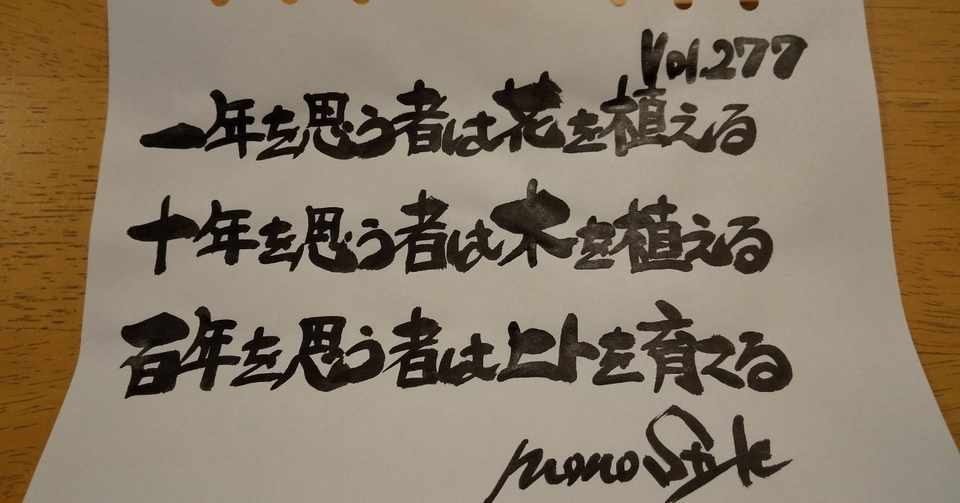 Vol.277
一年を思う者は花を植える
十年を思う者は木を植える
百年を思う者はヒトを育てる
monoStyle